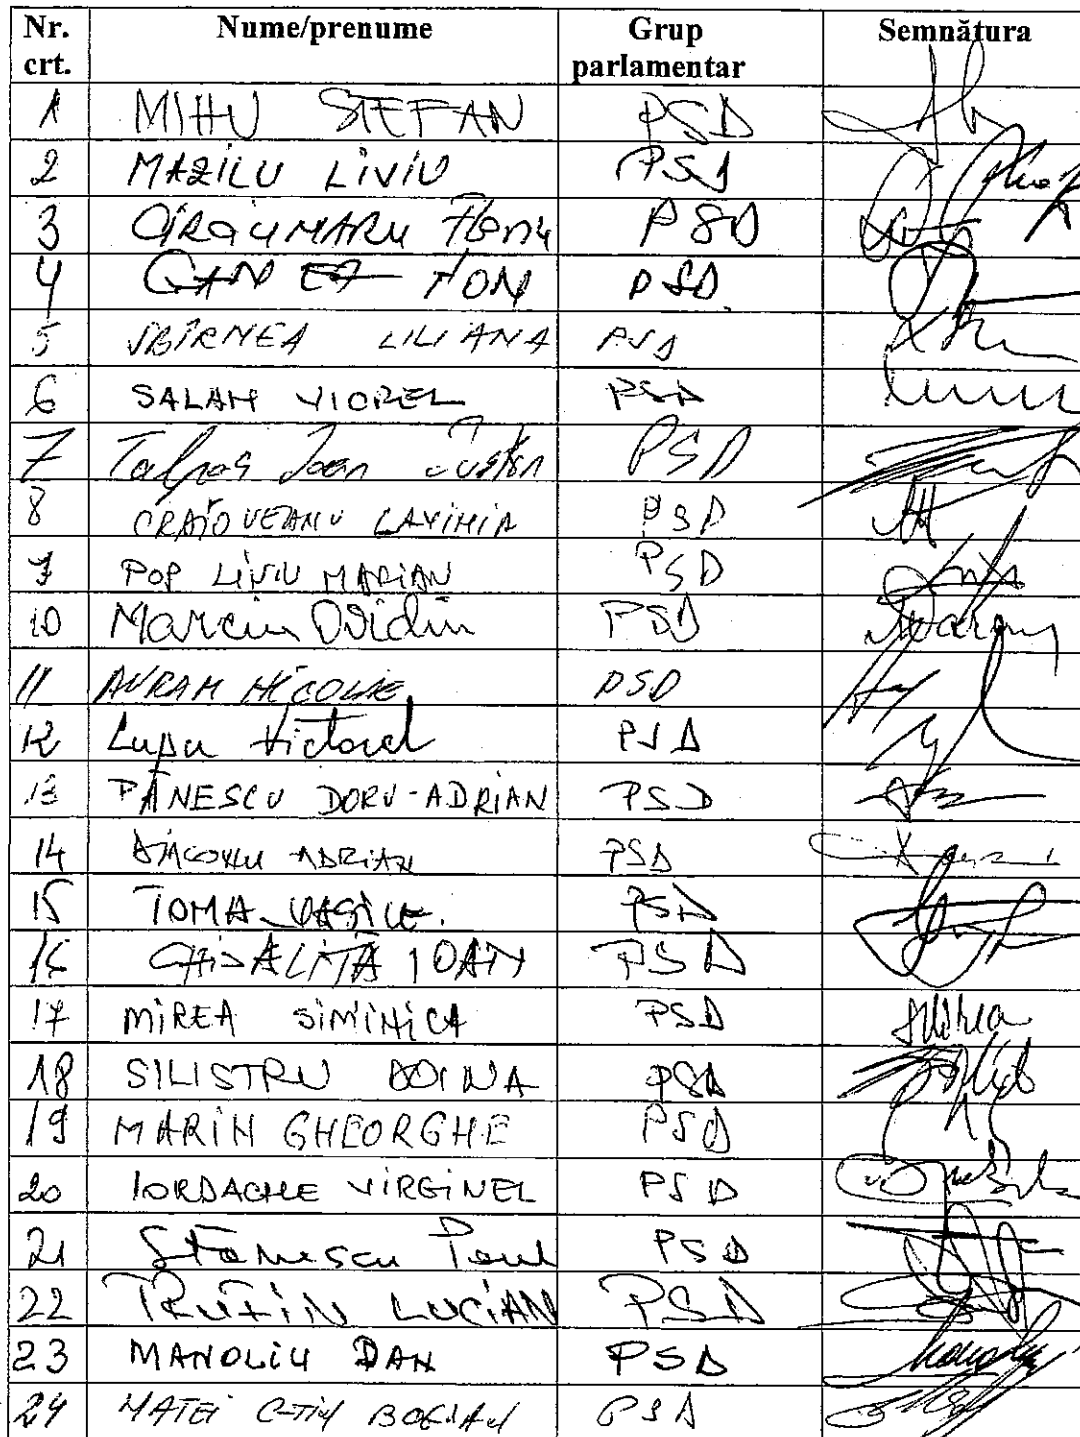 Nr. crt. Nume/prenume Grup parlamentar Semnătura
1 MIHU STEFAN PSD
2 MAZILU LIVIU PSD
3 CÎRCIUMARU Florin PSD
4 GANEA ION PSD
5 SBÎRNEA LILIANA PSD
6 SALAN VIOREL PSD
7 Talpoș Ioan Iustin PSD
8 CRAIOVEANU LAVINIA PSD
9 POP LIVIU MARIAN PSD
10 Marciu Ovidiu PSD
11 AVRAM NICOLAE PSD
12 Lupu Victorel PSD
13 PĂNESCU DORU-ADRIAN PSD
14 DIACONU ADRIAN PSD
15 TOMA VASILE PSD
16 CHISALIȚĂ IOAN PSD
17 MIREA SIMINICA PSD Mirea
18 SILISTRU DOINA PSD
19 MARIN GHEORGHE PSD
20 IORDACHE VIRGINEL PSD
21 Stănescu Paul PSD
22 TRUFIN LUCIAN PSD
23 MANOLIU DAN PSD
24 MATEI C-TIN BOGDAN PSD